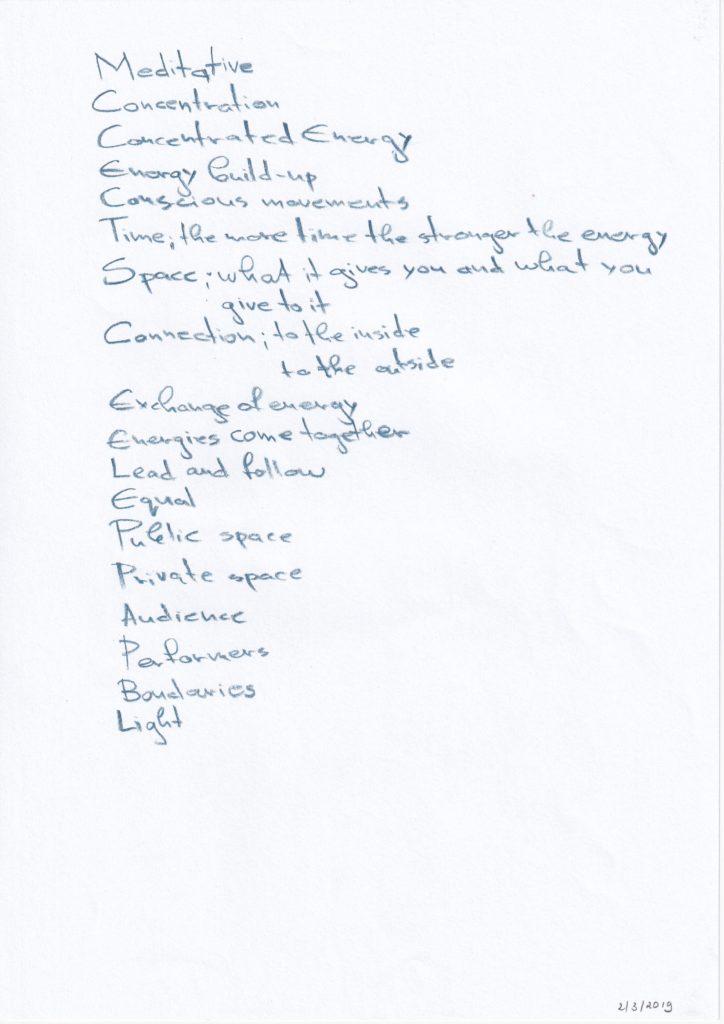 Meditative
Concentration
Concentrated Energy
Energy build-up
Conscious movements
Time; the more time the stronger the energy
Space; what it gives you and what you
give to it
Connection; to the inside
to the outside
Exchange of energy
Energies come together
Lead and follow
Equal
Public space
Private space
Audience
Performers
Boudaries
Light
2/3/2019